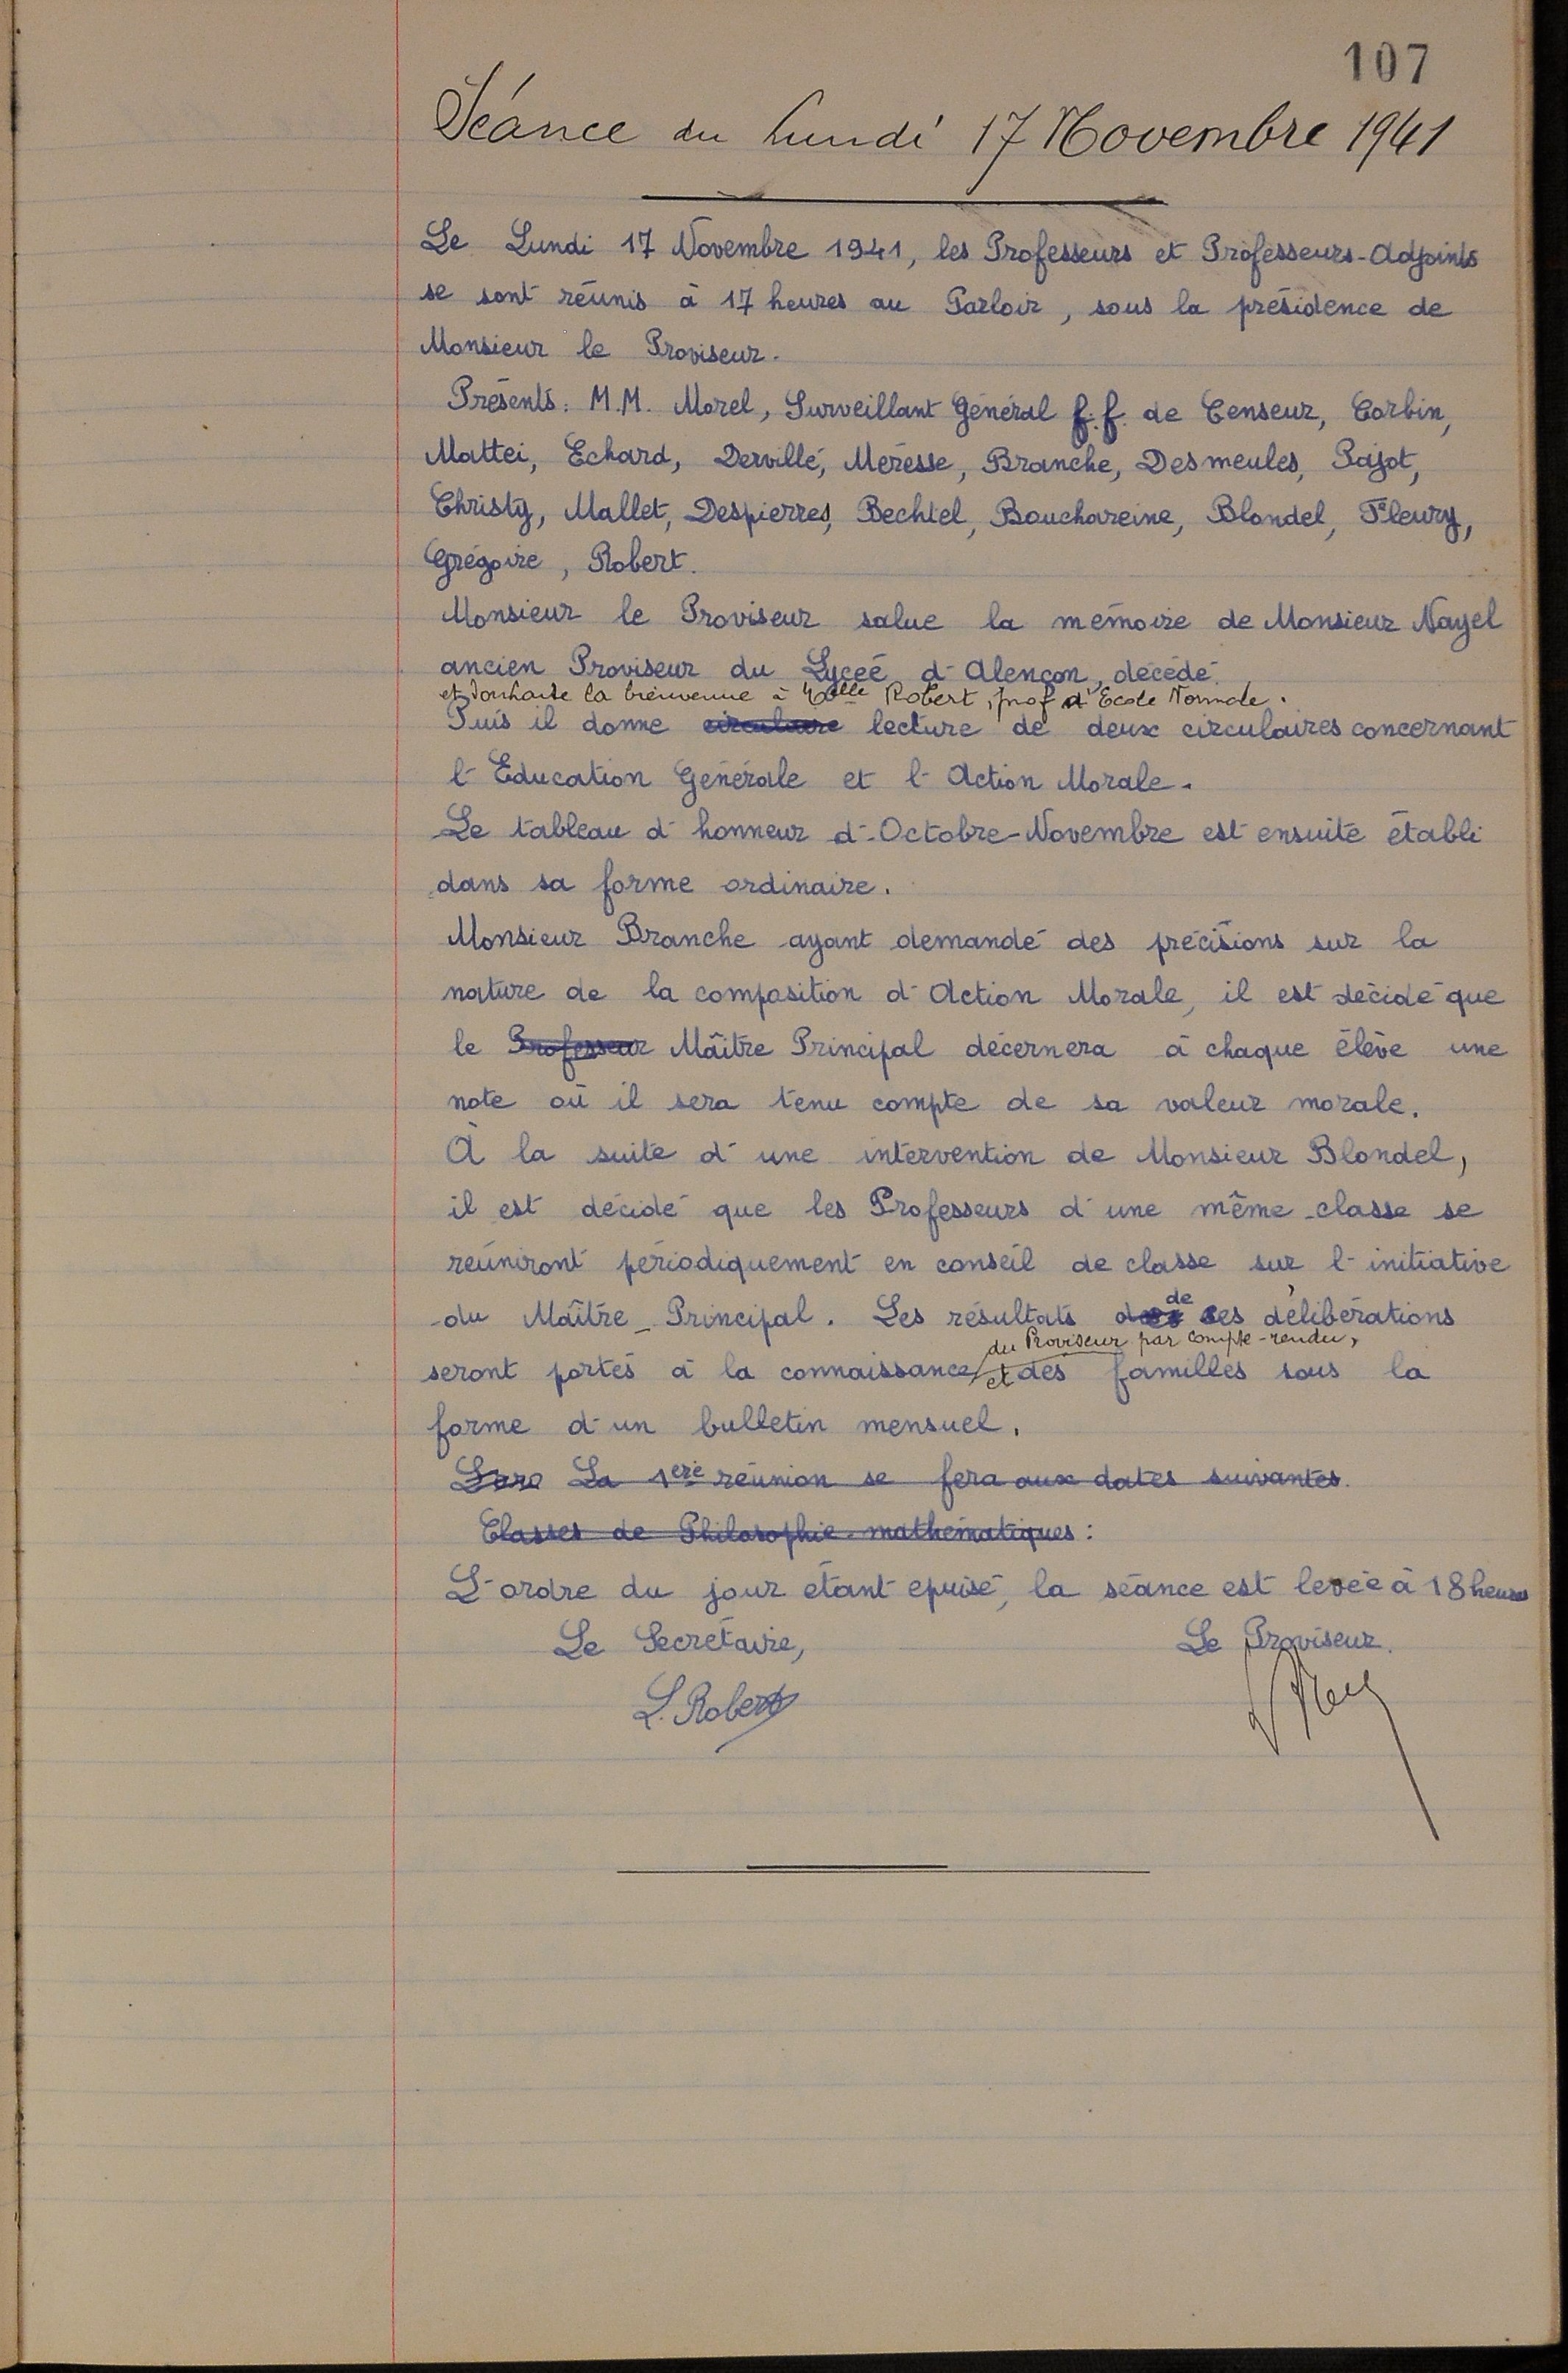 107
Séance du Lundi 17 Novembre 1941
Le Lundi 17 Novembre 1941, les Professeurs et Professeurs-Adjoints
se sont réunis à 17 heures au Parloir, sous la présidence de
Monsieur le Proviseur.
Présents: M.M. Morel, Surveillant Général f.f. de Censeur, Corbin,
Mattei, Echard, Dervillé, Meresse, Branche, Desmeules, Pajot,
Christy, Mallet, Despierres, Bechtel, Bouchareine, Blondel, Fleury,
Grégoire, Robert.
Monsieur le Proviseur salue la mémoire de Monsieur Nayel
ancien Proviseur du Lyceé d'Alençon, décédé.
et souhaite la bienvenue à Melle Robert, prof d'Ecole Normale.
Puis il donne circulaire lecture de deux circulaires concernant
l'Education Générale et l'Action Morale.
Le tableau d'honneur d'Octobre-Novembre est ensuite établi
dans sa forme ordinaire.
Monsieur Branche ayant demandé des précisions sur la
nature de la composition d'Action Morale, il est décidé que
le Professeur Maître Principal décernera à chaque élève une
note où il sera tenu compte de sa valeur morale.
A la suite d'une intervention de Monsieur Blondel,
il est décidé que les Professeurs d'une même classe se
réuniront périodiquement en conseil de classe sur l'initiative
de
du Maître-Principal. Les résultats ces délibérations
du Proviseur par compte-rendu,
seront portés à la connaissance et des familles sous la
forme d'un bulletin mensuel.
La 1ère réunion se fera aux dates suivantes.
Classes de Philosophie-mathématiques:
L'ordre du jour étant epuisé, la séance est levée à 18 heures
Le Secrétaire, Le Proviseur.
L. Robert